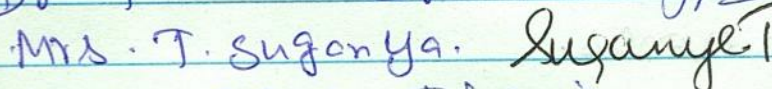 Mrs. T. Suganya. Suganya T